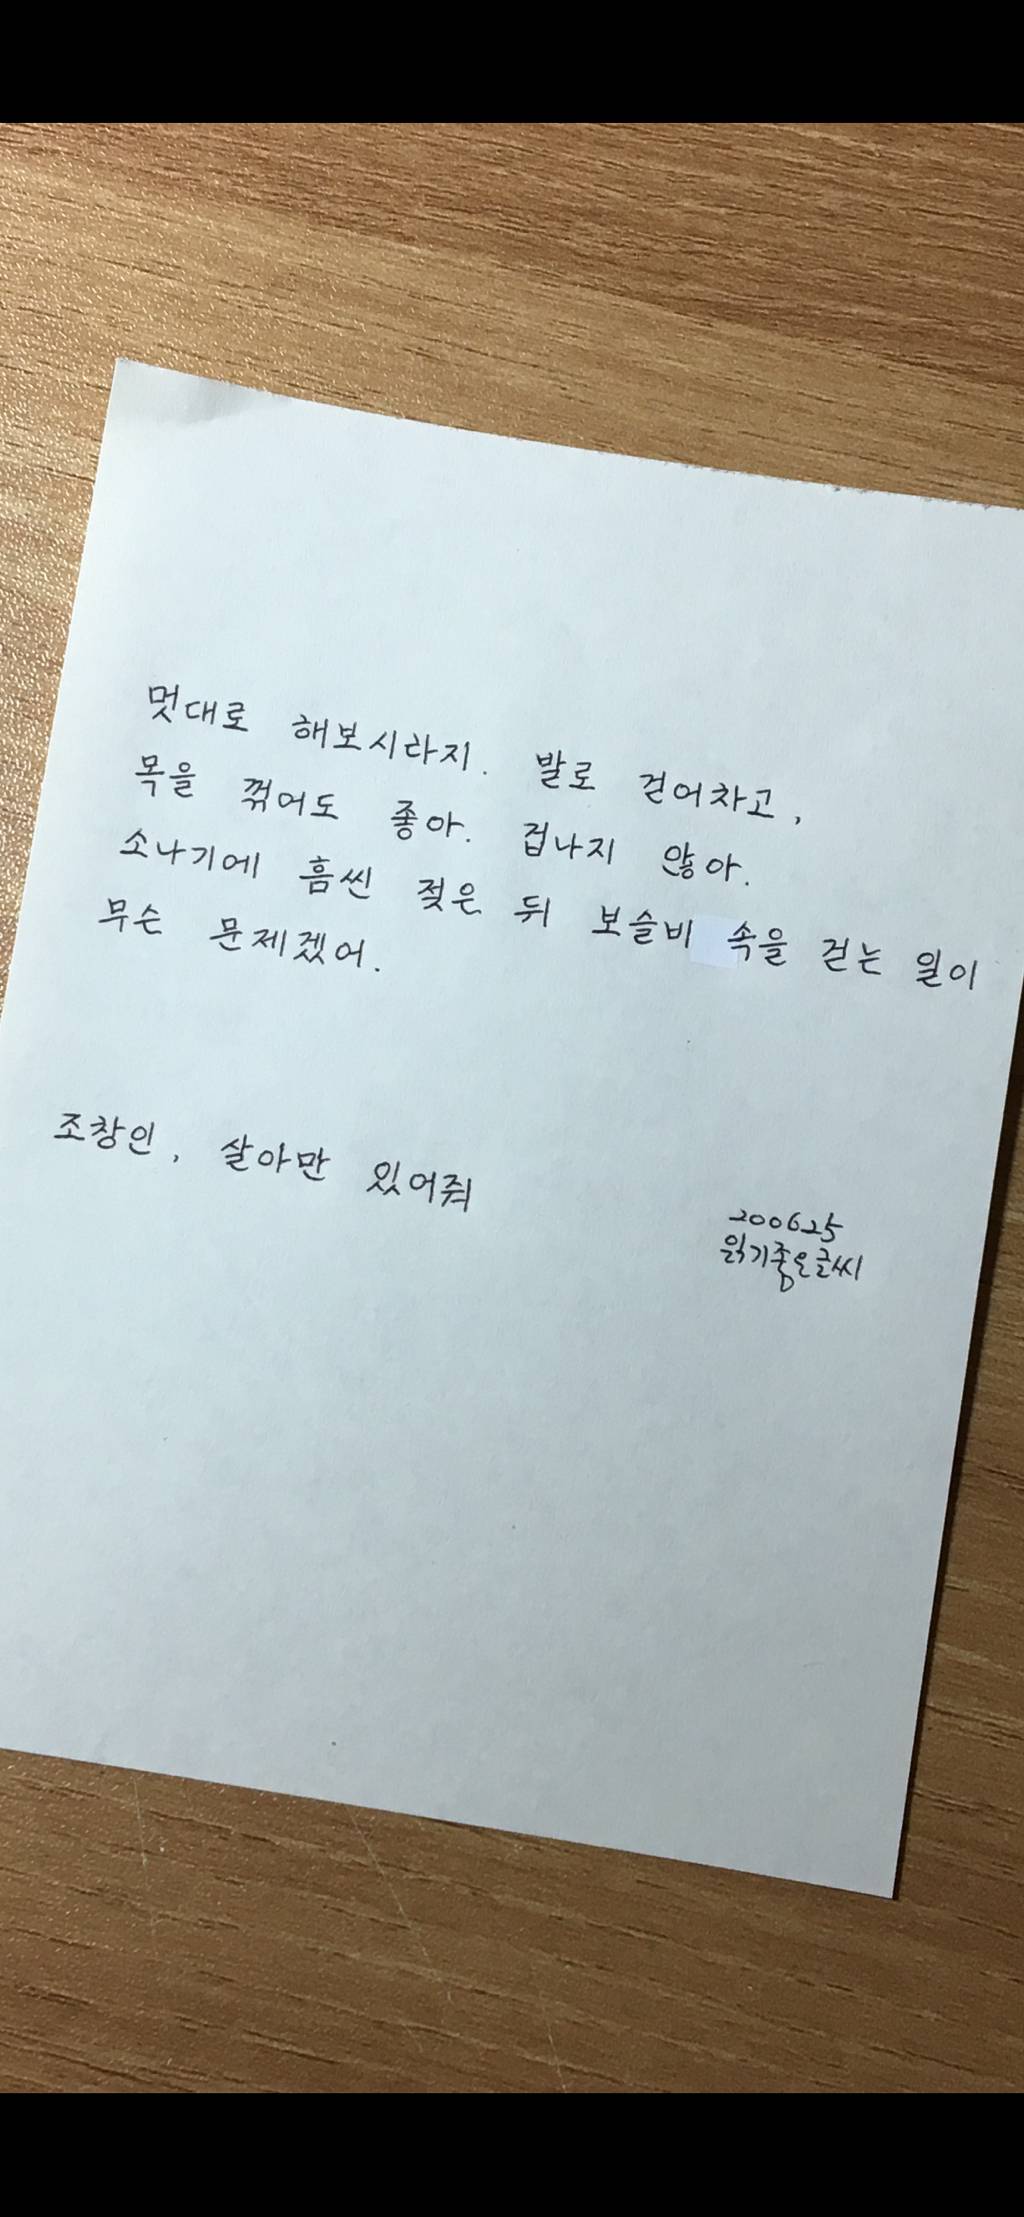 멋대로 해보시라지. 발로 걷어차고,
목을 꺾어도 좋아. 겁나지 않아.
소나기에 흠씬 젖은 뒤 보슬비 속을 걷는 일이
무슨 문제겠어.
조창인, 살아만 있어줘
200625
읽기좋은글씨